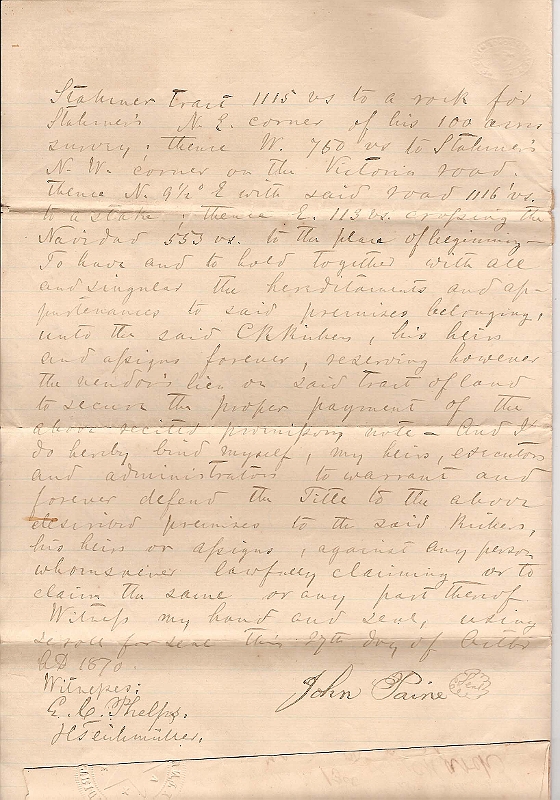 Stahmer tract 1115 vs to a rock for
Stahmer's N. E. corner of his 100 acres
survey; thence W. 760 vs to Stahmer's
N. W. corner on the Victoria road.
thence N. 9½° E with said road 1116 vs.
to a stake; thence E. 113 vs. crossing the
Navidad 553 vs. to the place of beginning—
To have and to hold together with all
and singular the hereditaments and ap-
purtenances to said premises belonging,
unto the said C R, his heirs
and assigns forever, reserving however
the vendor's lien on said tract of land
to secure the proper payment of the
above recited promissory note — And I
do hereby bind myself, my heirs, executors
and administrators to warrant and
forever defend the Title to the above
described premises to the said
his heirs or assigns, against any person
whomsoever lawfully claiming or to
claim the same or any part thereof
Witness my hand and seal, using
scroll for seal this 27th day of Octbr
AD 1870.
Witnesses: John Paine
E. C. Phelps.